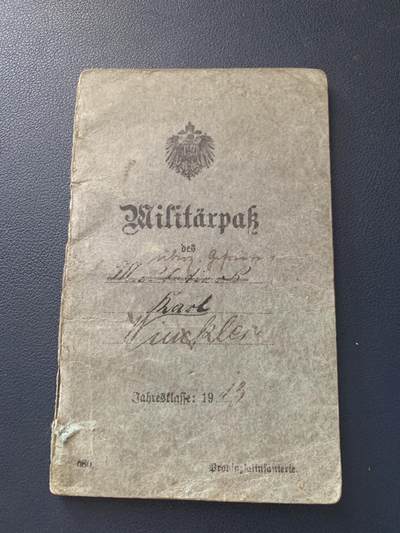 Militärpaß
des
Karl
Winkler
Jahresklasse: 1913
680.
Provinzialinfanterie.